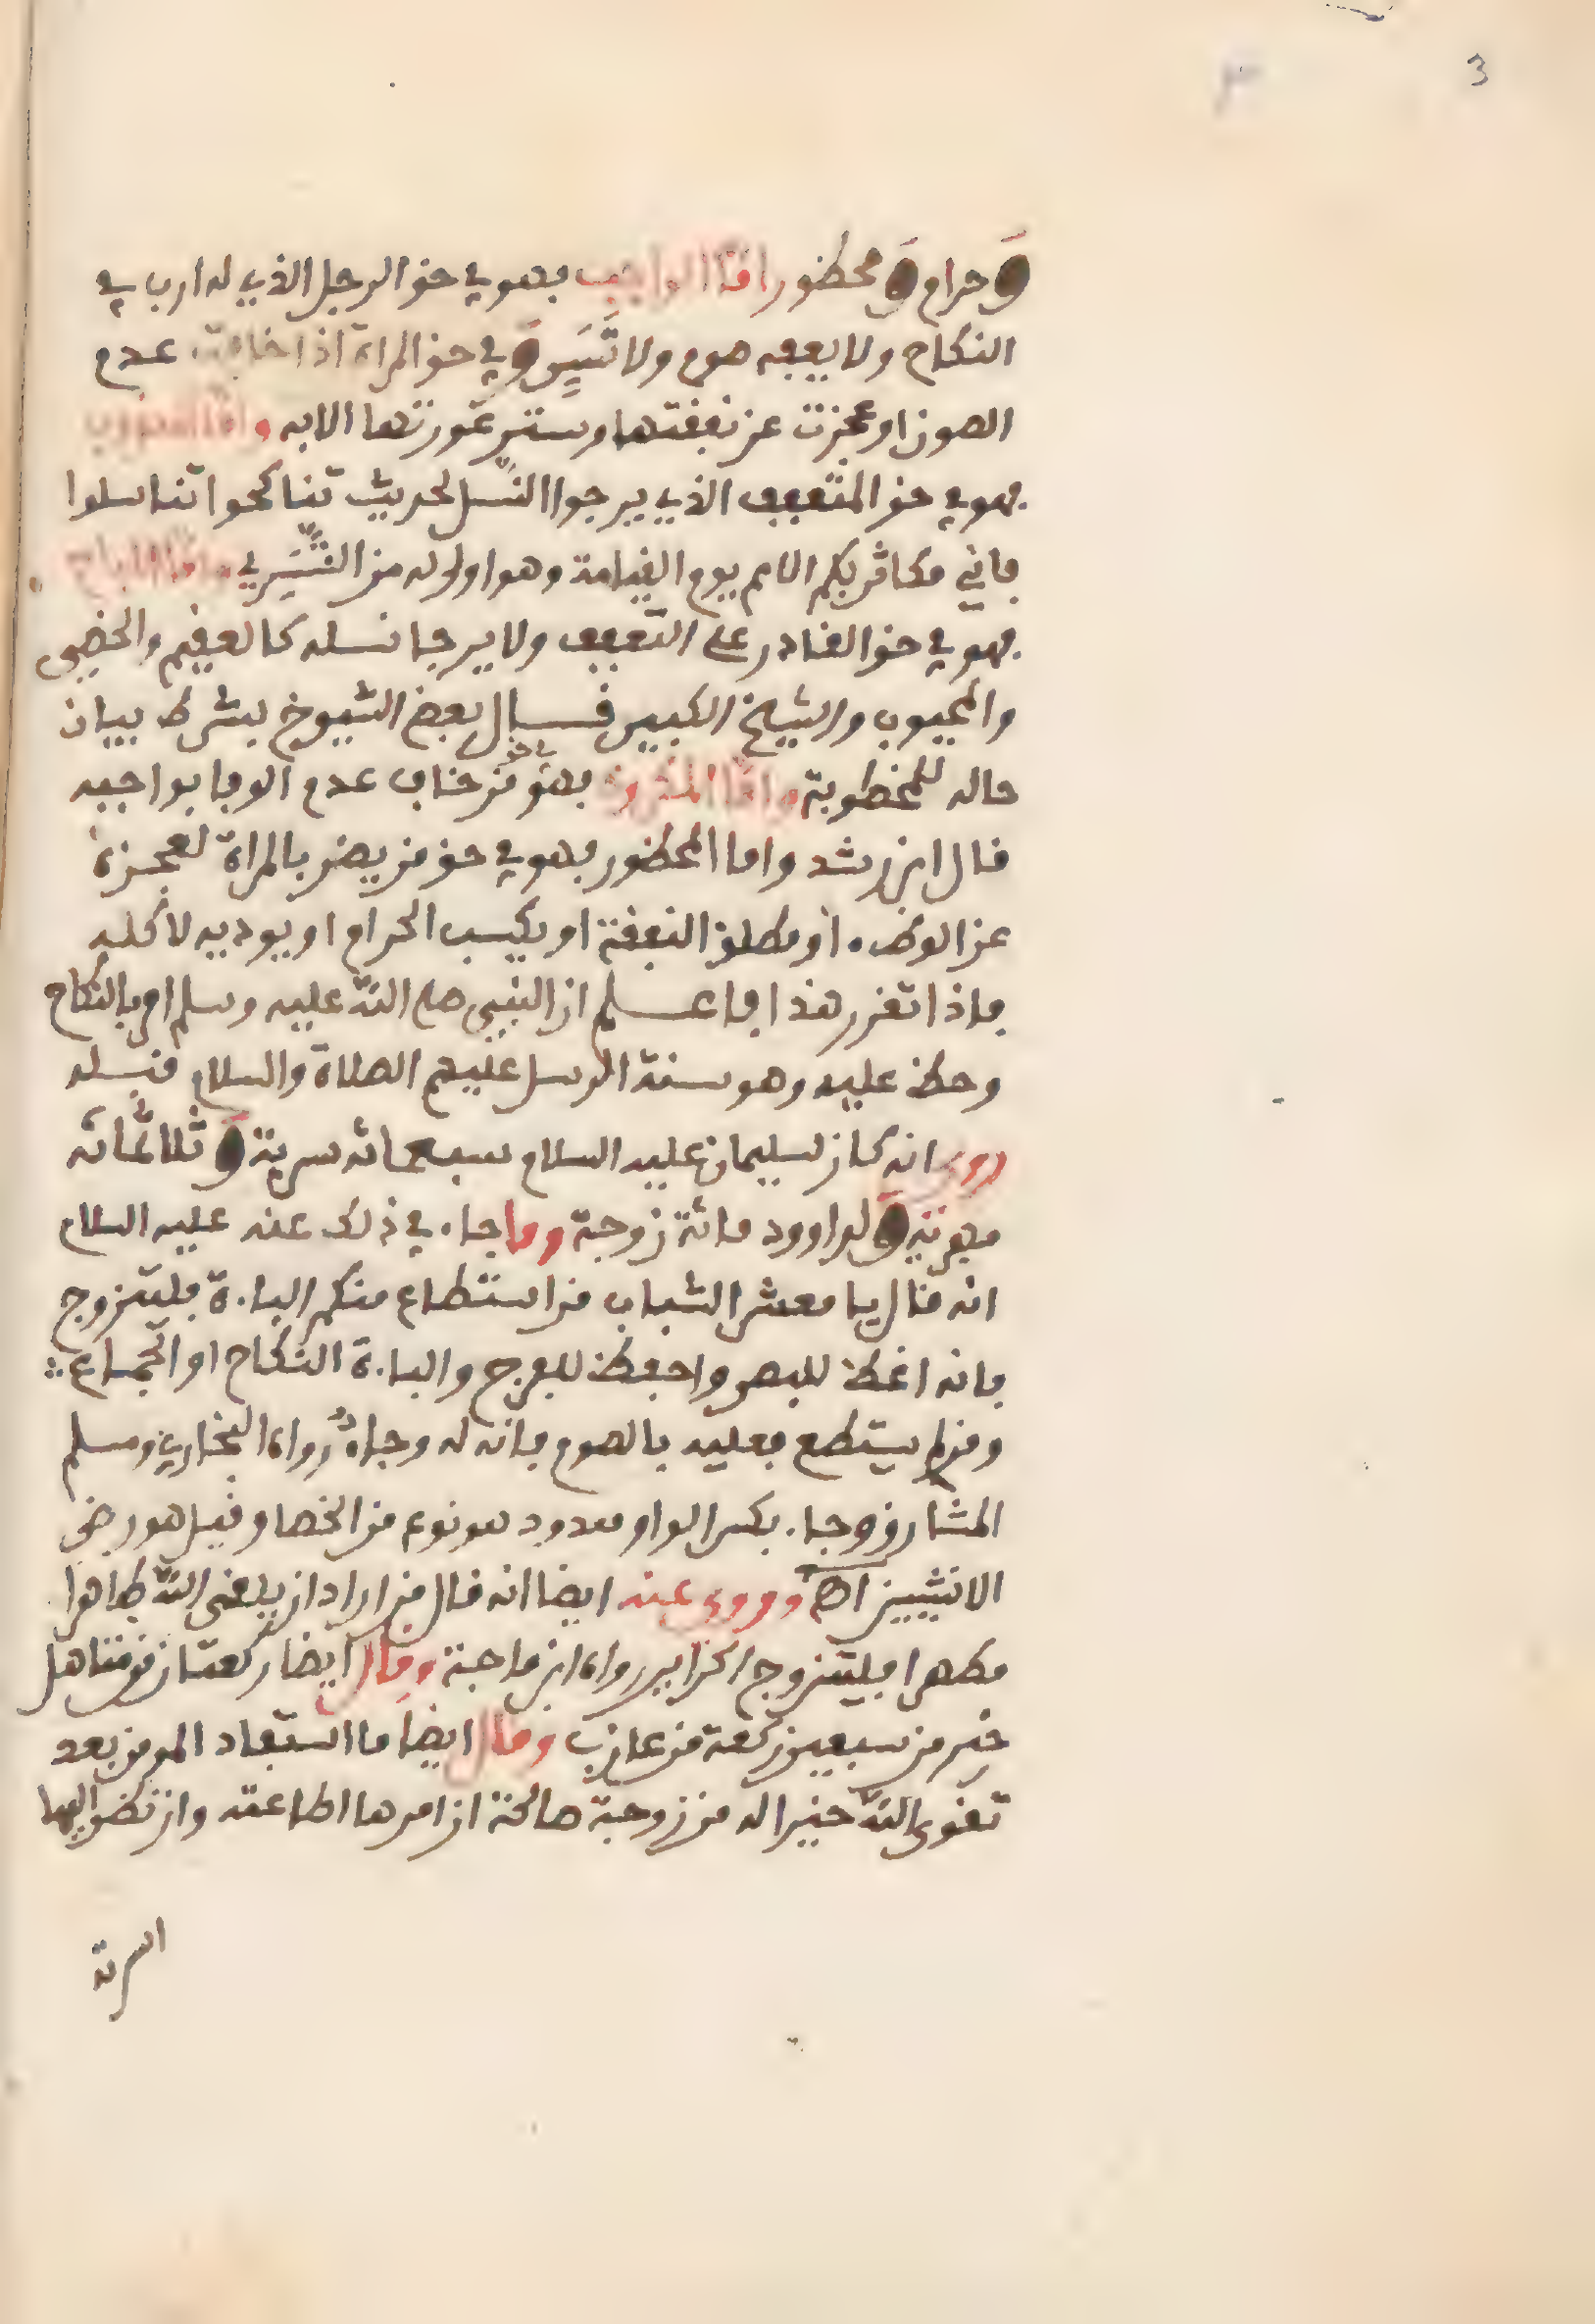 3
وحرام ومحظور اما الواجب فهو في حق الرجل الذي له ارب في
النكاح ولا يعفه صوم ولا تسر وفي حق المراة اذا خافت عدم
الصون او عجزت عن نفقتها وستر عورتها الا به واما المندوب
فهو في حق المتعفف الذي يرجوا النسل لحديث تناكحوا تناسلوا
فاني مكاثر بكم الامم يوم القيامة وهو اولى له من التسري واما المباح
فهو في حق القادر على التعفف ولا يرجا نسله كالعقيم والخصي
والمجبوب والشيخ الكبير قال بعض الشيوخ بشرط بيان
حاله للمخطوبة واما المكروه فهو في حق من خاف عدم الوفا بواجبه
قال ابن رشد واما المحظور فهو في حق من يضر بالمراة لعجزه
عن الوطء او مطلق النفقة او يكسب الحرام او يوديه لاكله
فاذا تقرر هذا فاعلم ان النبي صلى الله عليه وسلم امر بالنكاح
وحظ عليه وهو سنة الرسل عليهم الصلاة والسلام قبله
روي انه كان لسليمان عليه السلام سبعمائه سرية وثلاثمائه
مهرية ولداوود مائة زوجة وما جاء في ذلك عنه عليه السلام
انه قال يا معشر الشباب من استطاع منكم الباءة فليتزوج
فانه اغظ للبصر واحفظ للفرج والباءة النكاح او الجماع
ومن لم يستطع فعليه بالصوم فانه له وجاء رواه البخاري ومسلم
المشارق وجاء بكسر الواو ممدود هو نوع من الخصا وقيل هو رض
الانثيين اه وروي عنه ايضا انه قال من اراد ان يلقى الله طاهرا
مطهرا فليتزوج الحراير رواه ابن ماجة وقال ايضا ركعتان من متاهل
خير من سبعين ركعة من عازب وقال ايضا ما استفاد المومن بعد
تقوى الله خيرا له من زوجة صالحة ان امرها اطاعته وان نضر اليها
اسرته